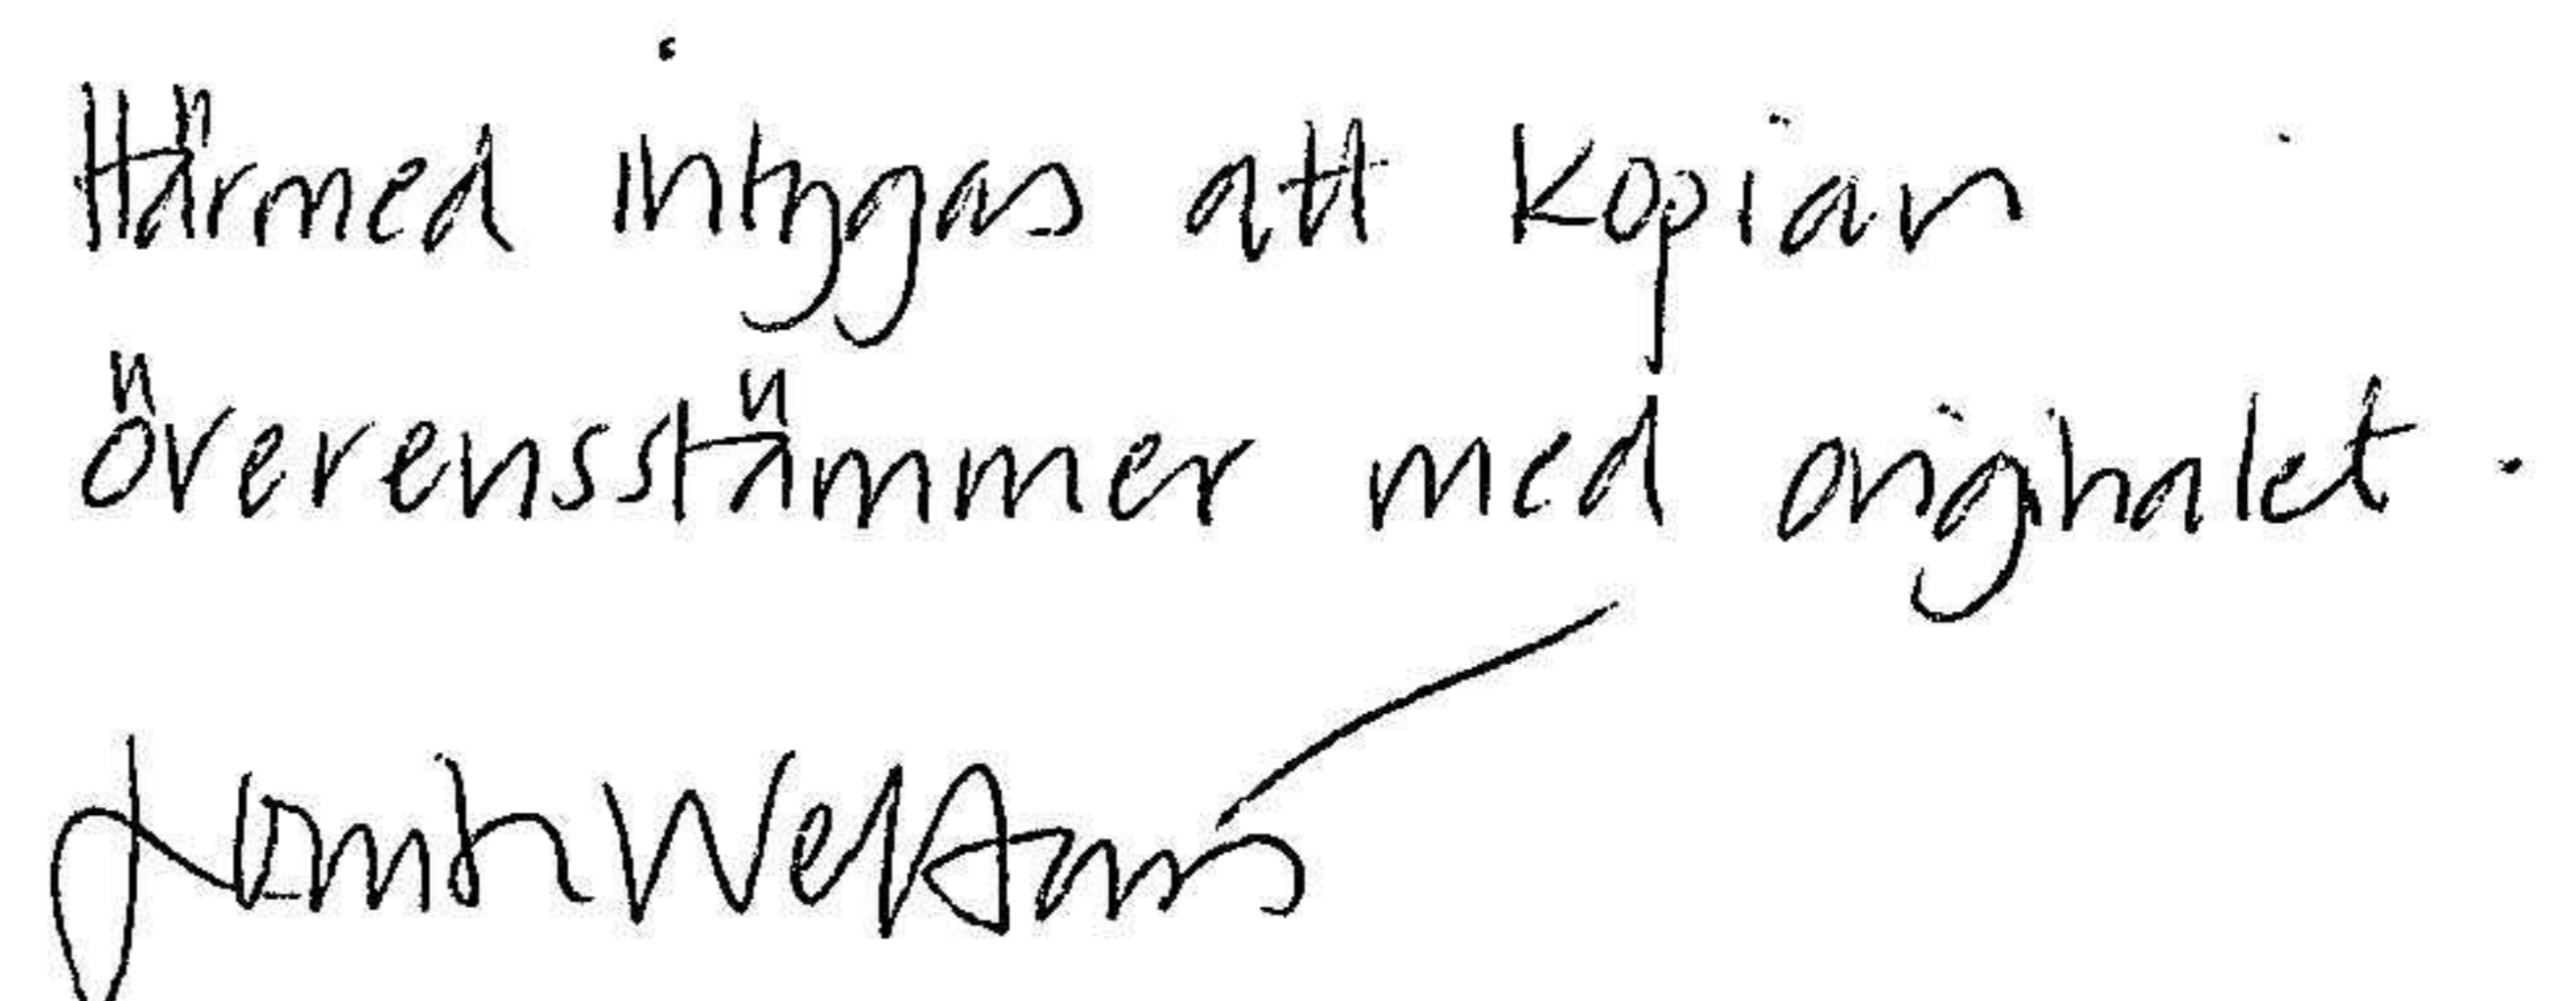 Härmed intygas att kopian
överensstämmer med originalet.